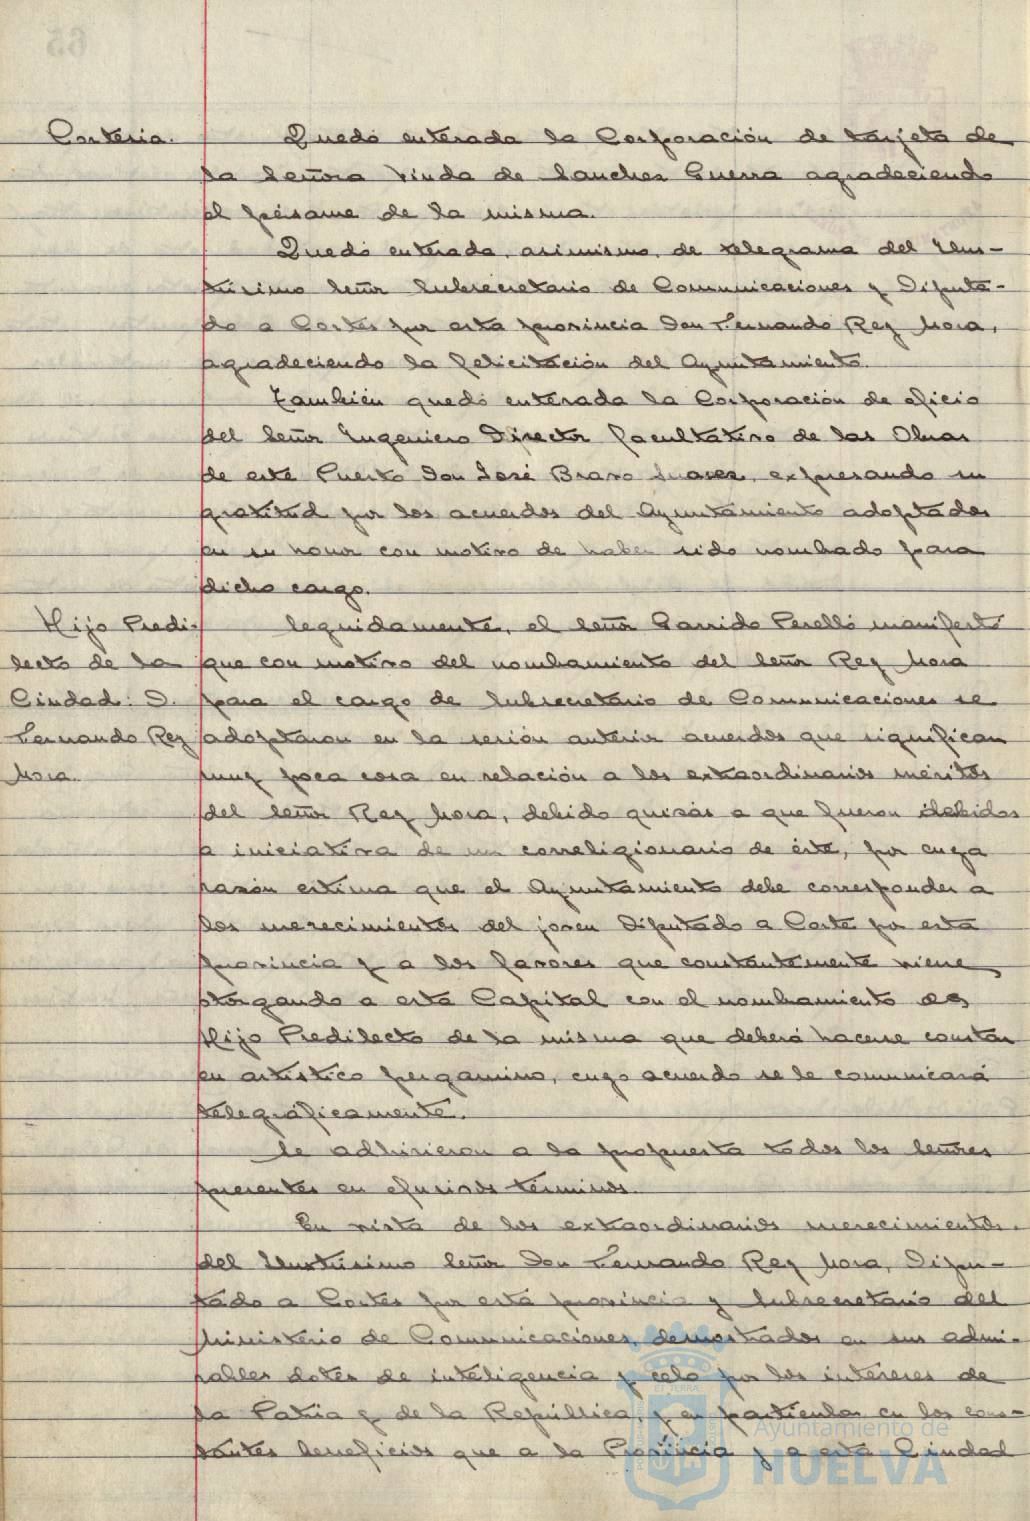 Cortesia.
Quedó enterada la Corporación de tarjeta de
la Señora Viuda de Sanchez Guerra agradeciendo
el pésame de la misma.
Quedó enterada, asimismo, de telegrama del Ilus-
trísimo Señor Subsecretario de Comunicaciones y Diputa-
do a Cortes por esta provincia Don Fernando Rey Mora,
agradeciendo la felicitación del Ayuntamiento.
También quedó enterada la Corporación de oficio
del Señor Ingeniero Director facultativo de las Obras
de este Puerto Don José Bravo Suarez, expresando su
gratitud por los acuerdos del Ayuntamiento adoptados
en su honor con motivo de haber sido nombrado para
dicho cargo.
Hijo Predi-
lecto de la
Ciudad: D.
Fernando Rey
Mora.
Seguidamente, el Señor Garrido Perelló manifestó
que con motivo del nombramiento del Señor Rey Mora
para el cargo de Subsecretario de Comunicaciones se
adoptaron en la sesión anterior acuerdos que significan
muy poca cosa en relación a los extraordinarios méritos
del Señor Rey Mora, debido quizás a que fueron debidos
a iniciativa de un correligionario de éste, por cuya
razón estima que el Ayuntamiento debe corresponder a
los merecimientos del joven Diputado a Corte por esta
provincia y a los favores que constantemente viene
otorgando a esta Capital con el nombramiento de
Hijo Predilecto de la misma que deberá hacerse constar
en artístico pergamino, cuyo acuerdo se le comunicará
telegráficamente.
Se adhirieron a la propuesta todos los Señores
presentes en efusivos términos.
En vista de los extraordinarios merecimientos
del Ilustrísimo Señor Don Fernando Rey Mora, Dipu-
tado a Cortes por esta provincia y Subsecretario del
Ministerio de Comunicaciones, demostrados en sus admi-
rables dotes de inteligencia y celo por los intereses de
la Patria y de la República, y en particular en los cons-
tantes beneficios que a la Provincia y a esta Ciudad
Ayuntamiento de
HUELVA